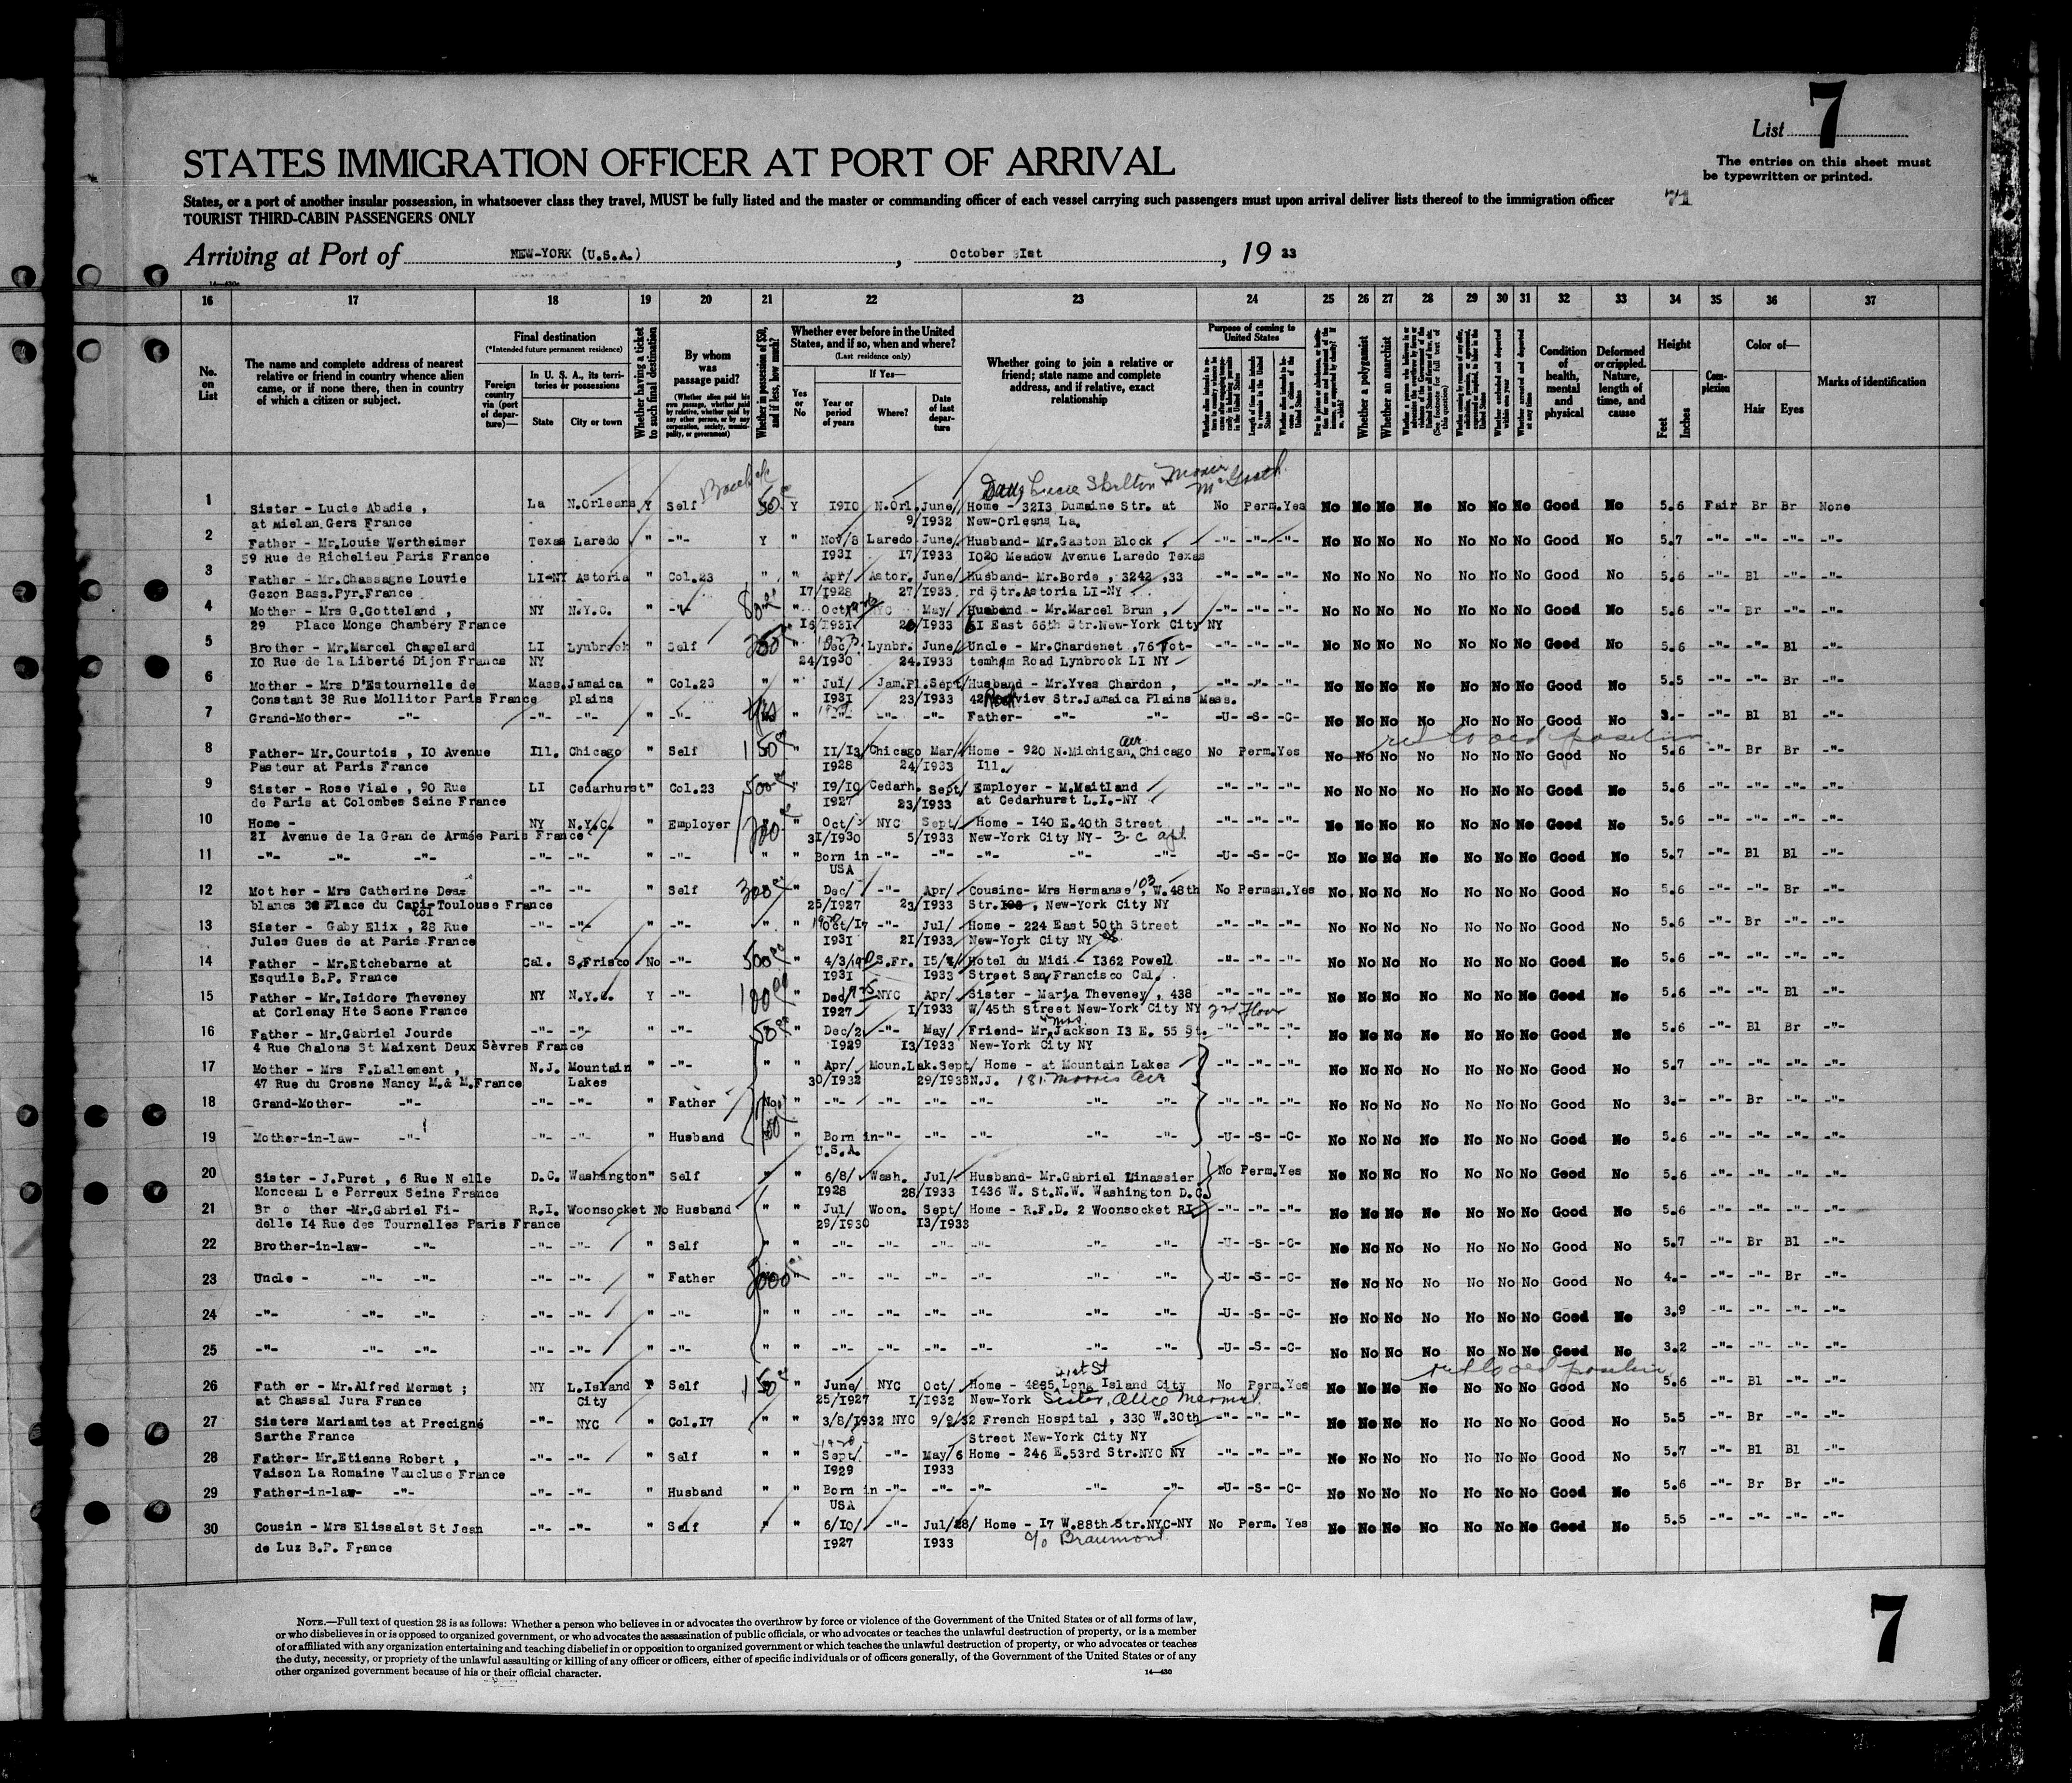 List 7
The entries on this sheet must
be typewritten or printed.
STATES IMMIGRATION OFFICER AT PORT OF ARRIVAL
States, or a port of another insular possession, in whatsoever class they travel, MUST be fully listed and the master or commanding officer of each vessel carrying such passengers must upon arrival deliver lists thereof to the immigration officer
71
TOURIST THIRD-CABIN PASSENGERS ONLY
Arriving at Port of NEW-YORK (U.S.A.), October Ist, 19 33
16 17 18 19 20 21 22 23 24 25 26 27 28 29 30 31 32 33 34 35 36 37
No. on List
The name and complete address of nearest relative or friend in country whence alien came, or if none there, then in country of which a citizen or subject.
Final destination
(*Intended future permanent residence)
Foreign country via (port of departure)—
In U. S. A., its territories or possessions
State City or town
Whether having a ticket to such final destination
By whom was passage paid?
(Whether alien paid his own passage, whether paid by relative, whether paid by any other person, or by any corporation, society, municipality, or government)
Whether in possession of $50, and if less, how much?
Whether ever before in the United States, and if so, when and where?
(Last residence only)
Yes or No
If Yes—
Year or period of years Where? Date of last departure
Whether going to join a relative or friend; state name and complete address, and if relative, exact relationship
Purpose of coming to United States
Whether a polygamist
Whether an anarchist
Condition of health, mental and physical
Deformed or crippled. Nature, length of time, and cause
Height
Feet Inches
Complexion
Color of—
Hair Eyes
Marks of identification
1 Sister - Lucie Abadie , La N.Orleans Y Self 50 Y I9I0 N.Orl. June/ Home - 32I3 Dumaine Str. at No Perm. Yes No No No No No No No Good No 5.6 Fair Br Br None
at Mielan Gers France 9/I932 New-Orleans La.
2 Father - Mr.Louis Wertheimer Texas Laredo " -"- Y " Nov/8 Laredo June/ Husband- Mr.Gaston Block , -"- -"- -"- No No No No No No No Good No 5.7 -"- -"- -"- -"-
59 Rue de Richelieu Paris France I931 I7/I933 I020 Meadow Avenue Laredo Texas
3 Father - Mr.Chassagne Louvie LI-NY Astoria " Col.23 " " Apr/ Astor. June/ Husband- Mr.Borde , 3242 ,33 -"- -"- -"- No No No No No No No Good No 5.6 -"- Bl -"- -"-
Gezon Bass.Pyr.France I7/I928 27/I933 rd Str.Astoria LI-NY
4 Mother - Mrs G.Gotteland , NY N.Y.C. " -"- " Oct/ May/ Husband - Mr.Marcel Brun , -"- -"- -"- No No No No No No No Good No 5.6 -"- Br -"- -"-
29 Place Monge Chambéry France I5/I931 /I933 East 66th Str.New-York City NY
5 Brother - Mr.Marcel Chapelard LI Lynbrook " Self " Dec/ Lynbr. June/ Uncle - Mr.Chardenet ,76 Tot- -"- -"- -"- No No No No No No No Good No 5.6 -"- -"- Bl -"-
I0 Rue de la Liberté Dijon France NY 24/I930 24.I933 tenham Road Lynbrook LI NY
6 Mother - Mrs D'Estournelle de Mass. Jamaica " Col.23 " " Jul/ Jam.Pl. Sept/ Husband - Mr.Yves Chardon , -"- -"- -"- No No No No No No No Good No 5.5 -"- -"- Br -"-
Constant 38 Rue Mollitor Paris France plains I931 23/I933 42 Rockview Str.Jamaica Plains Mass.
7 Grand-Mother- -"- -"- -"- " -"- " -"- -"- -"- Father- -"- -"- -U- -S- -C- No No No No No No No Good No 3.- -"- Bl Bl -"-
8 Father- Mr.Courtois , I0 Avenue Ill. Chicago " Self 150 " II/I3 Chicago Mar/ Home - 920 N.Michigan Chicago No Perm. Yes No No No No No No No Good No 5.6 -"- Br Br -"-
Pasteur at Paris France I928 24/I933 Ill.
9 Sister - Rose Viale , 90 Rue LI Cedarhurst " Col.23 500 " I9/I0 Cedarh. Sept/ Employer - M.Maitland -"- -"- -"- No No No No No No No Good No 5.6 -"- -"- -"- -"-
de Paris at Colombes Seine France I927 23/I933 at Cedarhurst L.I.-NY
10 Home - NY N.Y.C. " Employer " Oct/ NYC Sept/ Home - I40 E.40th Street -"- -"- -"- No No No No No No No Good No 5.6 -"- -"- -"- -"-
2I Avenue de la Gran de Armée Paris France 3I/I930 5/I933 New-York City NY- 3-C apt.
11 -"- -"- -"- -"- -"- " -"- " " Born in -"- -"- -"- -"- -"- -U- -S- -C- No No No No No No No Good No 5.7 -"- Bl Bl -"-
USA
12 Mot her - Mrs Catherine Des- -"- -"- " Self 300 " Dec/ -"- Apr/ Cousine- Mrs Hermanse 103 W.48th No Perman. Yes No No No No No No No Good No 5.6 -"- -"- Br -"-
blancs 38 Place du Capitol Toulouse France 25/I927 23/I933 Str. , New-York City NY
13 Sister - Gaby Elix , 28 Rue -"- -"- " -"- " " Oct/I7 -"- Jul/ Home - 224 East 50th Street -"- -"- -"- No No No No No No No Good No 5.6 -"- Br -"- -"-
Jules Gues de at Paris France I931 2I/I933 New-York City NY
14 Father - Mr.Etchebarne at Cal. S.Frisco No -"- 500 " 4/3/ S.Fr. I5/ Hotel du Midi - I362 Powell -"- -"- -"- No No No No No No No Good No 5.6 -"- -"- -"- -"-
Esquile B.P. France I931 I933 Street San Francisco Cal.
15 Father - Mr.Isidore Theveney NY N.Y.C. Y -"- 100 " Dec/ NYC Apr/ Sister - Maria Theveney , 438 -"- -"- -"- No No No No No No No Good No 5.6 -"- -"- Bl -"-
at Corlenay Hte Saone France I927 I/I933 W/45th street New-York City NY 2nd Floor
16 Father - Mr.Gabriel Jourde -"- -"- " -"- 50 " Dec/2 -"- May/ Friend- Mr.Jackson I3 E. 55 St. -"- -"- -"- No No No No No No No Good No 5.6 -"- Bl Br -"-
4 Rue Chalons St Maixent Deux Sèvres France I929 I3/I933 New-York City NY
17 Mother - Mrs F.Lallement , N.J. Mountain " -"- " " Apr/ Moun.Lak. Sept/ Home - at Mountain Lakes -"- -"- -"- No No No No No No No Good No 5.7 -"- -"- -"- -"-
47 Rue du Crosne Nancy M.& M.France Lakes 30/I932 29/I933 N.J. 181 Morris Ave
18 Grand-Mother- -"- -"- -"- " Father No " -"- -"- -"- -"- -"- -"- -"- -"- -"- No No No No No No No Good No 3.- -"- Br -"- -"-
19 Mother-in-law- -"- -"- -"- " Husband " Born in -"- -"- -"- -"- -"- -U- -S- -C- No No No No No No No Good No 5.6 -"- -"- -"- -"-
U.S.A.
20 Sister - J.Puret , 6 Rue N elle D.C. Washington " Self " " 6/8/ Wash. Jul/ Husband- Mr.Gabriel Linassier No Perm. Yes No No No No No No No Good No 5.6 -"- -"- -"- -"-
Monceau L e Perreux Seine France I928 28/I933 I436 W. St.N.W. Washington D.C.
21 Br o ther -Mr.Gabriel Fi- R.I. Woonsocket No Husband " " Jul/ Woon. Sept/ Home - R.F.D. 2 Woonsocket RI -"- -"- -"- No No No No No No No Good No 5.6 -"- -"- -"- -"-
delle I4 Rue des Tournelles Paris France 29/I930 I3/I933
22 Brother-in-law- -"- -"- -"- " Self " " -"- -"- -"- -"- -"- -"- -U- -S- -C- No No No No No No No Good No 5.7 -"- Br Bl -"-
23 Uncle - -"- -"- -"- -"- " Father " -"- -"- -"- -"- -"- -"- -U- -S- -C- No No No No No No No Good No 4.- -"- -"- Br -"-
24 -"- -"- -"- -"- -"- " -"- " " -"- -"- -"- -"- -"- -"- -U- -S- -C- No No No No No No No Good No 3.9 -"- -"- -"- -"-
25 -"- -"- -"- -"- " -"- " " -"- -"- -"- -"- -"- -"- -U- -S- -C- No No No No No No No Good No 3.2 -"- -"- -"- -"-
26 Fath er - Mr.Alfred Mermet ; NY L.Island Self 150 " June/ NYC Oct/ Home - 4885 Long Island City No Perm. Yes No No No No No No No Good No 5.6 -"- Bl -"- -"-
at Chassal Jura France City 25/I927 I/I932 New-York Sister, Alice Mermet
27 Sisters Mariamites at Precigné -"- NYC " Col.I7 " " 3/8/I932 NYC 9/9/32 French Hospital , 330 W.30th -"- -"- -"- No No No No No No No Good No 5.5 -"- Br -"- -"-
Sarthe France Street New-York City NY
28 Father- Mr.Etienne Robert , -"- -"- " Self " " Sept/ -"- May/6 Home - 246 E.53rd Str.NYC NY -"- -"- -"- No No No No No No No Good No 5.7 -"- Bl Bl -"-
Vaison La Romaine Vaucluse France I929 I933
29 Father-in-law- -"- -"- -"- " Husband " " Born in -"- -"- -"- -"- -"- -U- -S- -C- No No No No No No No Good No 5.6 -"- Br Br -"-
USA
30 Cousin - Mrs Elissalst St Jean -"- -"- " Self " " 6/I0/ -"- Jul/28/ Home - I7 W.88th Str.NYC-NY No Perm. Yes No No No No No No No Good No 5.5 -"- -"- -"- -"-
de Luz B.P. France I927 I933 c/o Braumont
NOTE.—Full text of question 28 is as follows: Whether a person who believes in or advocates the overthrow by force or violence of the Government of the United States or of all forms of law,
or who disbelieves in or is opposed to organized government, or who advocates the assassination of public officials, or who advocates or teaches the unlawful destruction of property, or is a member
of or affiliated with any organization entertaining and teaching disbelief in or opposition to organized government or which teaches the unlawful destruction of property, or who advocates or teaches
the duty, necessity, or propriety of the unlawful assaulting or killing of any officer or officers, either of specific individuals or of officers generally, of the Government of the United States or of any
other organized government because of his or their official character.
14—430
7